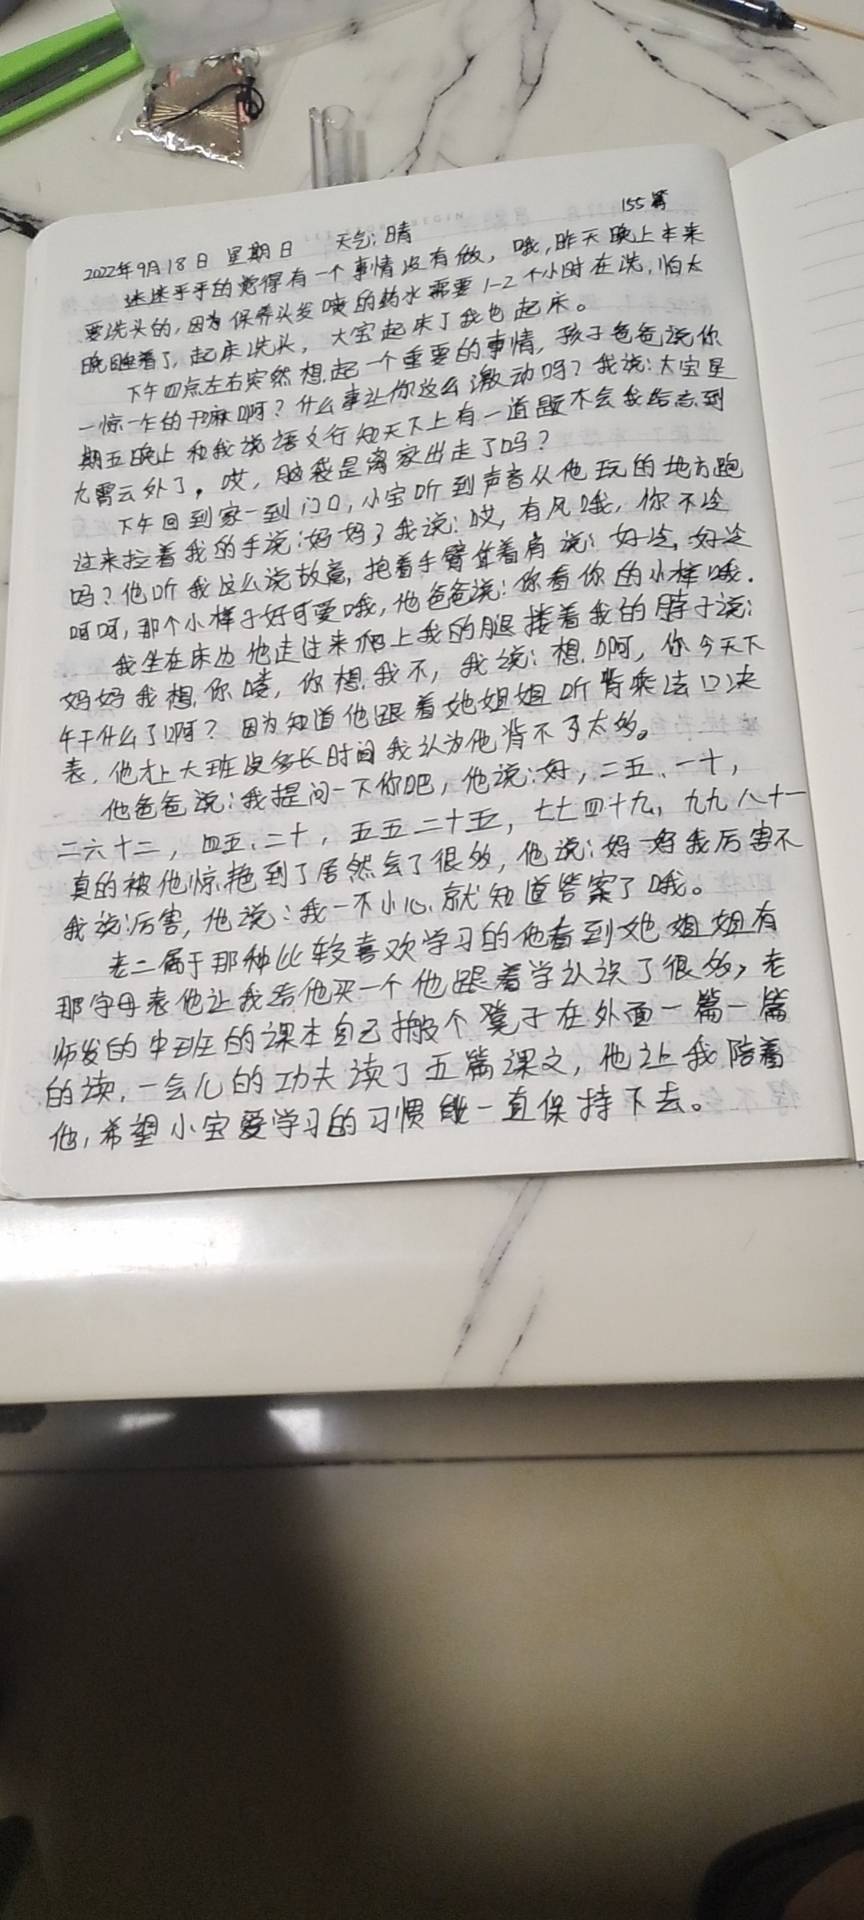 155篇
2022年9月18日 星期日 天气:晴
迷迷乎乎的觉得有一个事情没有做，哦,昨天晚上本来
要洗头的,因为保养头发喷的药水需要1-2个小时在洗,怕太
晚睡着了,起床洗头,大宝起床了我也起床。
下午四点左右突然想起一个重要的事情,孩子爸爸说你
一惊一乍的干嘛啊?什么事让你这么激动吗?我说:大宝星
期五晚上和我说语文行知天下上有一道题不会我给忘到
九霄云外了,哎,脑袋是离家出走了吗?
下午回到家一到门口,小宝听到声音从他玩的地方跑
过来拉着我的手说:妈妈,我说:哎,有风哦,你不冷
吗?他听我这么说故意,抱着手臂耸着肩说:好冷,好冷
呵呵,那个小样子好可爱哦,他爸爸说:你看你的小样哦.
我坐在床边他走过来爬上我的腿搂着我的脖子说:
妈妈我想你喽,你想我不,我说:想啊,你今天下
午干什么了啊?因为知道他跟着她姐姐听背乘法口决
表,他才上大班没多长时间我认为他背不了太多。
他爸爸说:我提问一下你吧,他说:好,二五、一十,
二六十二,四五、二十,五五二十五,七七四十九,九九八十一
真的被他惊艳到了居然会了很多,他说:妈妈我厉害不
我说:厉害,他说:我一不小心就知道答案了哦。
老二属于那种比较喜欢学习的他看到她姐姐有
那字母表他让我给他买一个他跟着学认识了很多,老
师发的中班的课本自己搬个凳子在外面一篇一篇
的读,一会儿的功夫读了五篇课文,他让我陪着
他,希望小宝爱学习的习惯能一直保持下去。